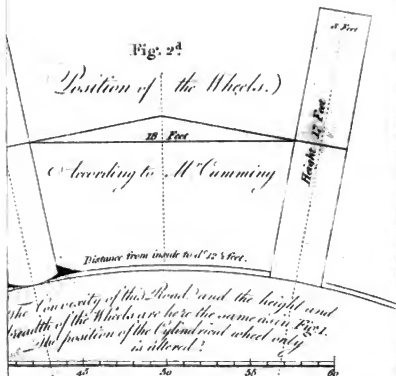 Fig. 2d
5 Feet
Position of the Wheels.)
18 Feet
Height 17 Feet
According to Mr Cumming
Distance from inside to do 12 ½ feet.
The Convexity of this Road and the height and
breadth of the Wheels are here the same as in Fig 1.
the position of the Cylindrical wheel only
is altered.
45 50 55 60